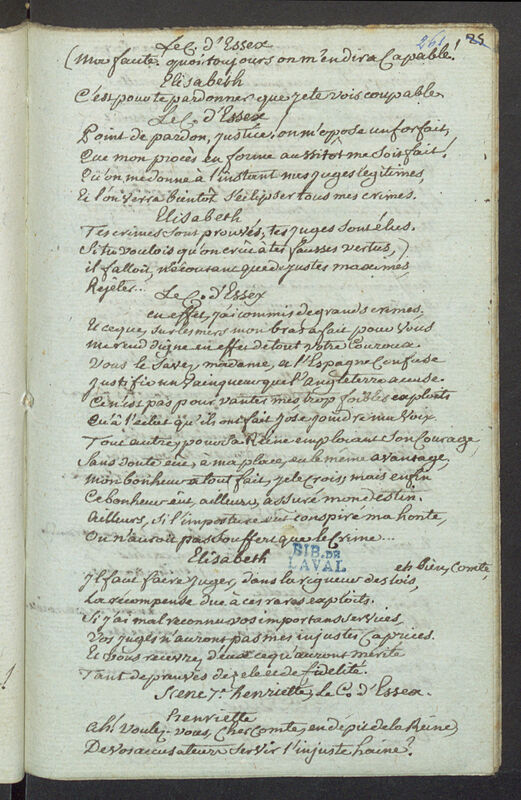 261 25
Le C. d'Essex
(Ma faute. quoi toujours on m'en dira Capable!
Elisabeth
C'est pour te pardonner que je te vois coupable
Le C. d'Essex
Point de pardon, justice, on m'opose un forfait,
Que mon procès en forme aussitôt me soit fait!
Qu'on me donne à l'instant mes juges legitimes,
Et l'on verra bientôt s'éclipser tous mes crimes.
Elisabeth
Tes crimes sont prouvés, tes juges sont élus.
Si tu voulois qu'on crût à tes fausses vertus,
il falloit, n'écoutant que de justes maximes,
Rejeter...
Le C. d'Essex
en effet, j'ai commis de grands crimes,
Et ce que, sur les mers mon bras a fait pour vous
me rend digne en effet de tout votre Couroux
Vous le savez, madame, et l'Espagne Confuse
justifie un vainqueur que l'Angleterre accuse.
Ce n'est pas pour vanter mes trop foibles exploits
Qu'à l'éclat qu'ils ont fait j'ose joindre ma Voix.
Tout autre, pour sa Reine employant son Courage,
Sans doute eut, à ma place, eu le même avantage,
mon bonheur a tout fait, je le crois, mais enfin
Ce bonheur eût, ailleurs, assuré mon destin.
Ailleurs, si l'imposture eut conspiré ma honte,
On n'auroit pas souffert que le Crime...
Elisabeth
eh bien, Comte,
il faut faire juger, dans la rigueur des lois,
La récompense due à ces rares exploits.
Si j'ai mal reconnu vos importans services,
Vos juges n'auront pas mes injustes Caprices.
Et vous recevrez d'eux ce qu'auront mérité
Tant de preuves de zele et de fidelité.
Scene 7e. henriette, le C. d'Essex.
henriette
Ah! Voulez-vous, Cher Comte, en dépit de la Reine,
De vos accusateurs servir l'injuste haine?
BIB. DE
LAVAL